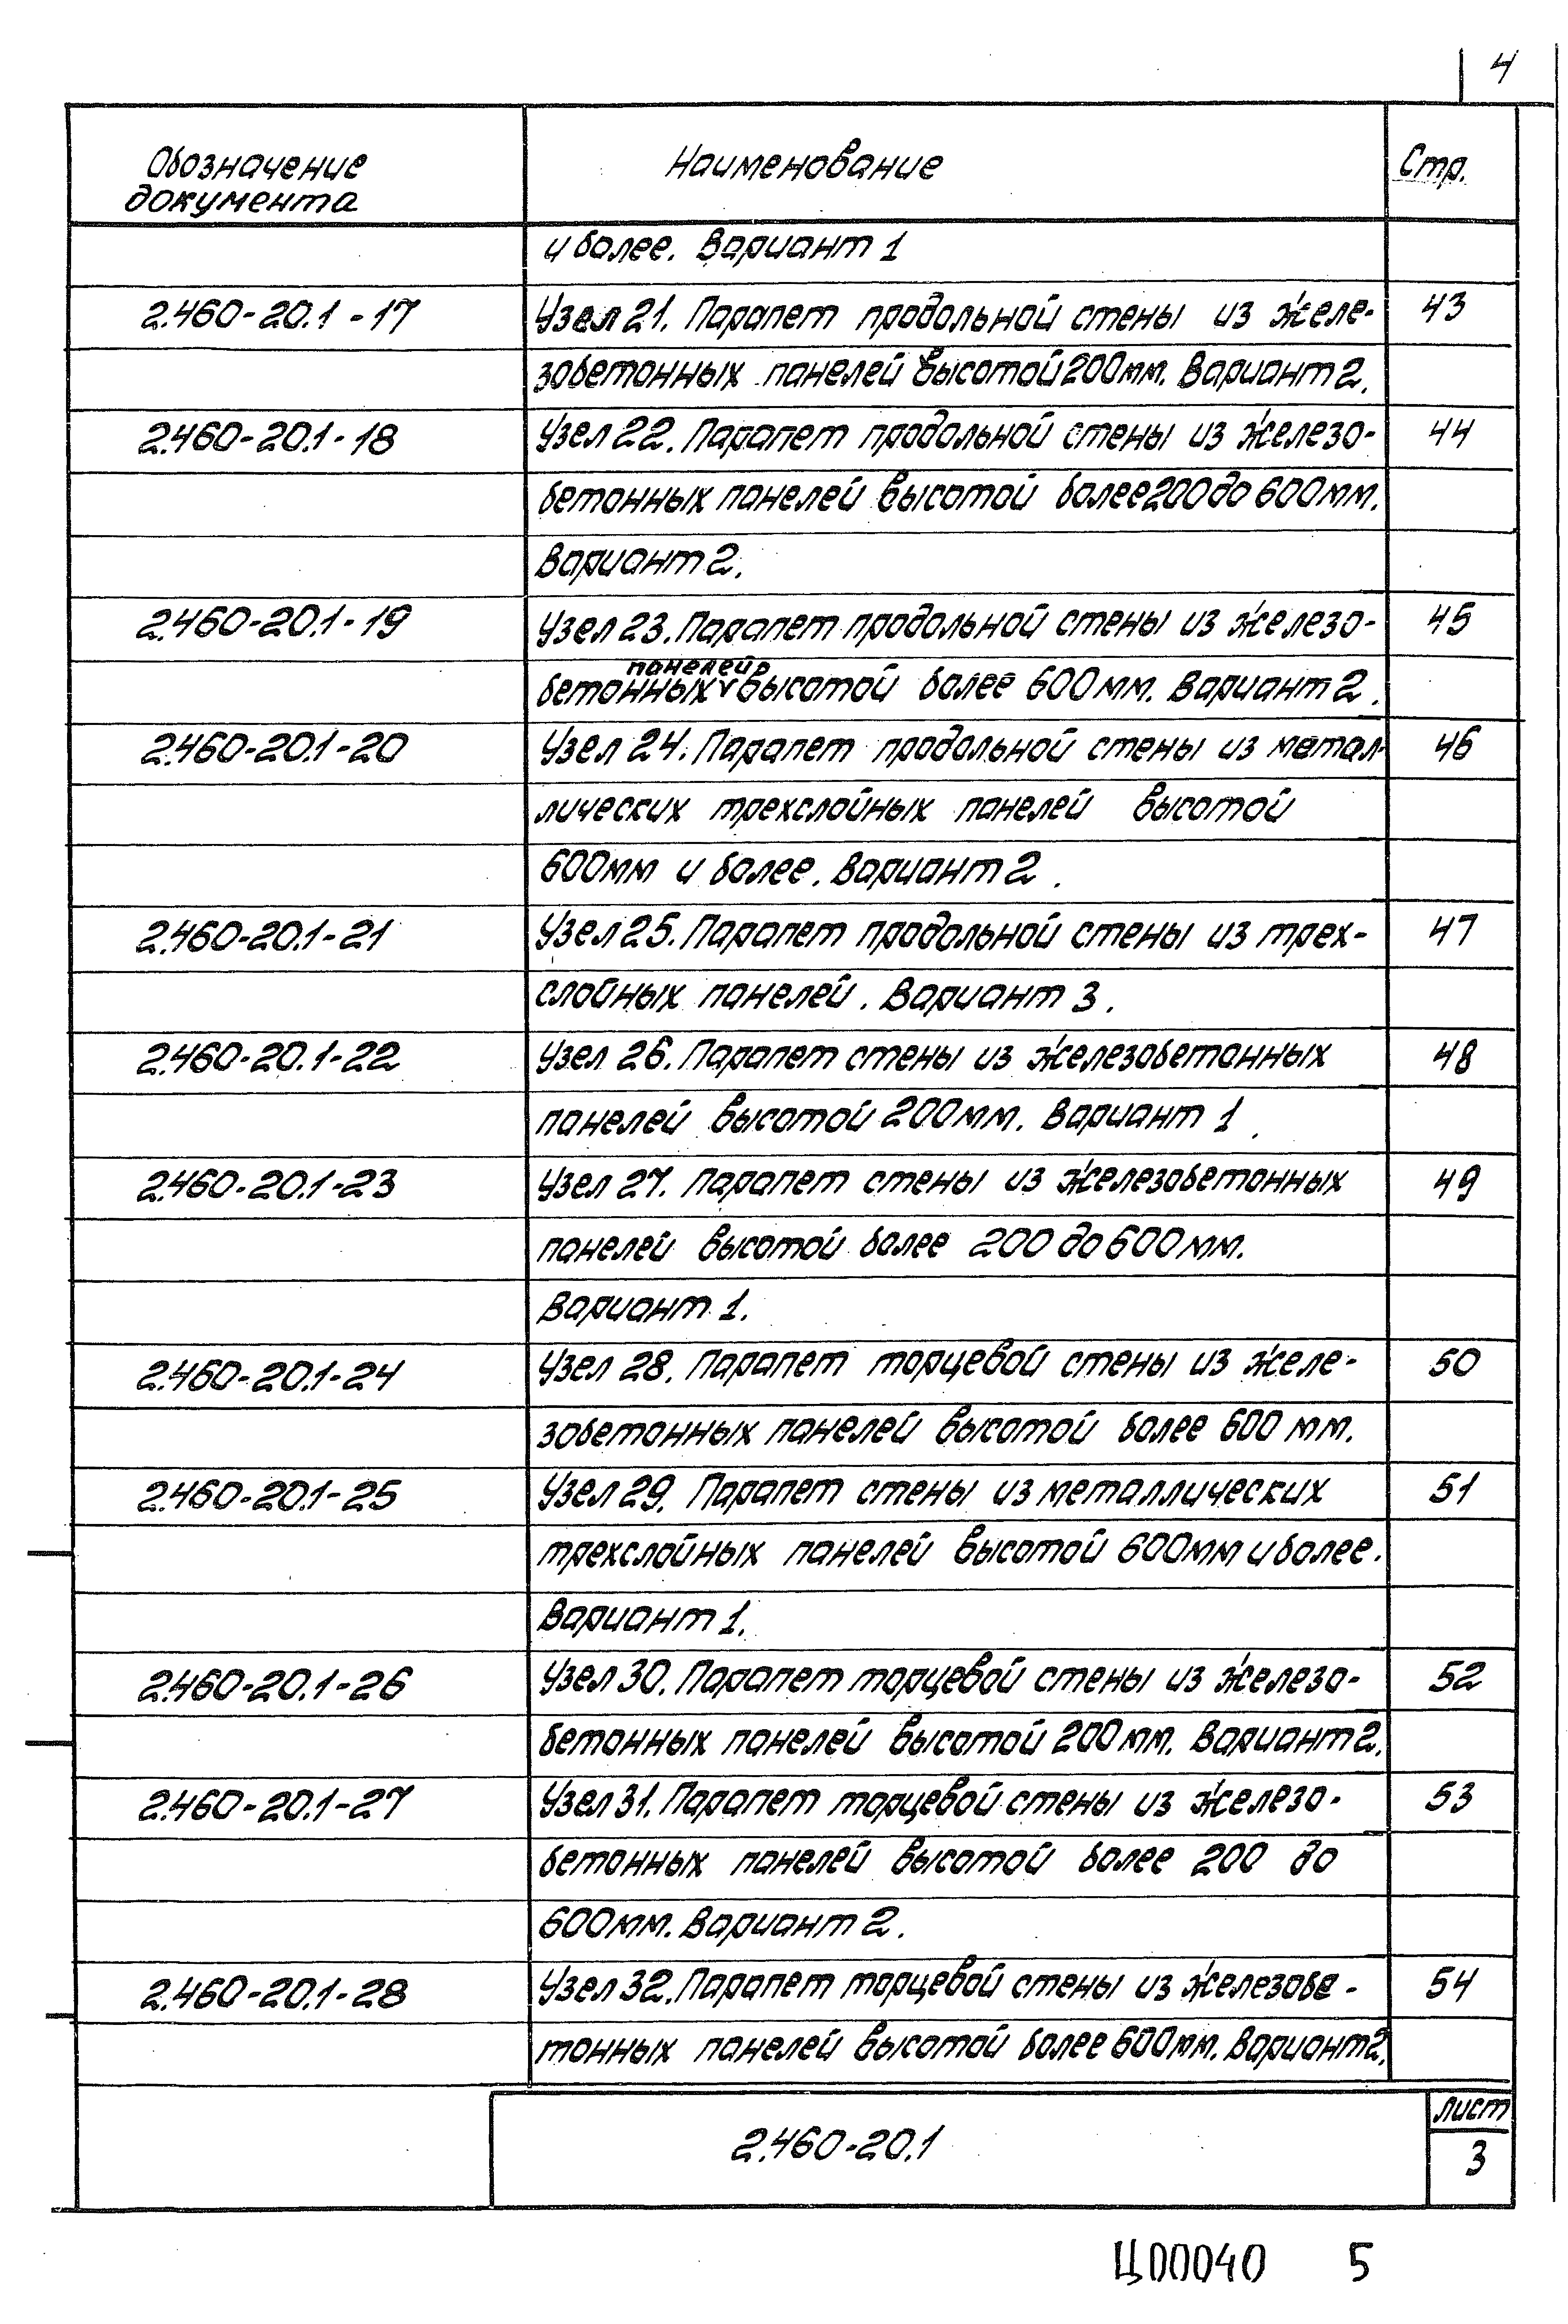 4
Обозначение документа Наименование Стр.
и более. Вариант 1
2.460-20.1-17 Узел 21. Парапет продольной стены из желе- 43
зобетонных панелей высотой 200мм. Вариант 2.
2.460-20.1-18 Узел 22. Парапет продольной стены из железо- 44
бетонных панелей высотой более 200 до 600мм.
Вариант 2.
2.460-20.1-19 Узел 23. Парапет продольной стены из железо- 45
бетонных панелей высотой более 600мм. Вариант 2.
2.460-20.1-20 Узел 24. Парапет продольной стены из метал- 46
лических трехслойных панелей высотой
600мм и более. Вариант 2.
2.460-20.1-21 Узел 25. Парапет продольной стены из трех- 47
слойных панелей. Вариант 3.
2.460-20.1-22 Узел 26. Парапет стены из железобетонных 48
панелей высотой 200мм. Вариант 1.
2.460-20.1-23 Узел 27. Парапет стены из железобетонных 49
панелей высотой более 200 до 600мм.
Вариант 1.
2.460-20.1-24 Узел 28. Парапет торцевой стены из желе- 50
зобетонных панелей высотой более 600 мм.
2.460-20.1-25 Узел 29. Парапет стены из металлических 51
трехслойных панелей высотой 600мм и более.
Вариант 1.
2.460-20.1-26 Узел 30. Парапет торцевой стены из железо- 52
бетонных панелей высотой 200мм. Вариант 2.
2.460-20.1-27 Узел 31. Парапет торцевой стены из железо- 53
бетонных панелей высотой более 200 до
600мм. Вариант 2.
2.460-20.1-28 Узел 32. Парапет торцевой стены из железобе- 54
тонных панелей высотой более 600мм. Вариант 2.
2.460-20.1 лист
3
Ц00040 5